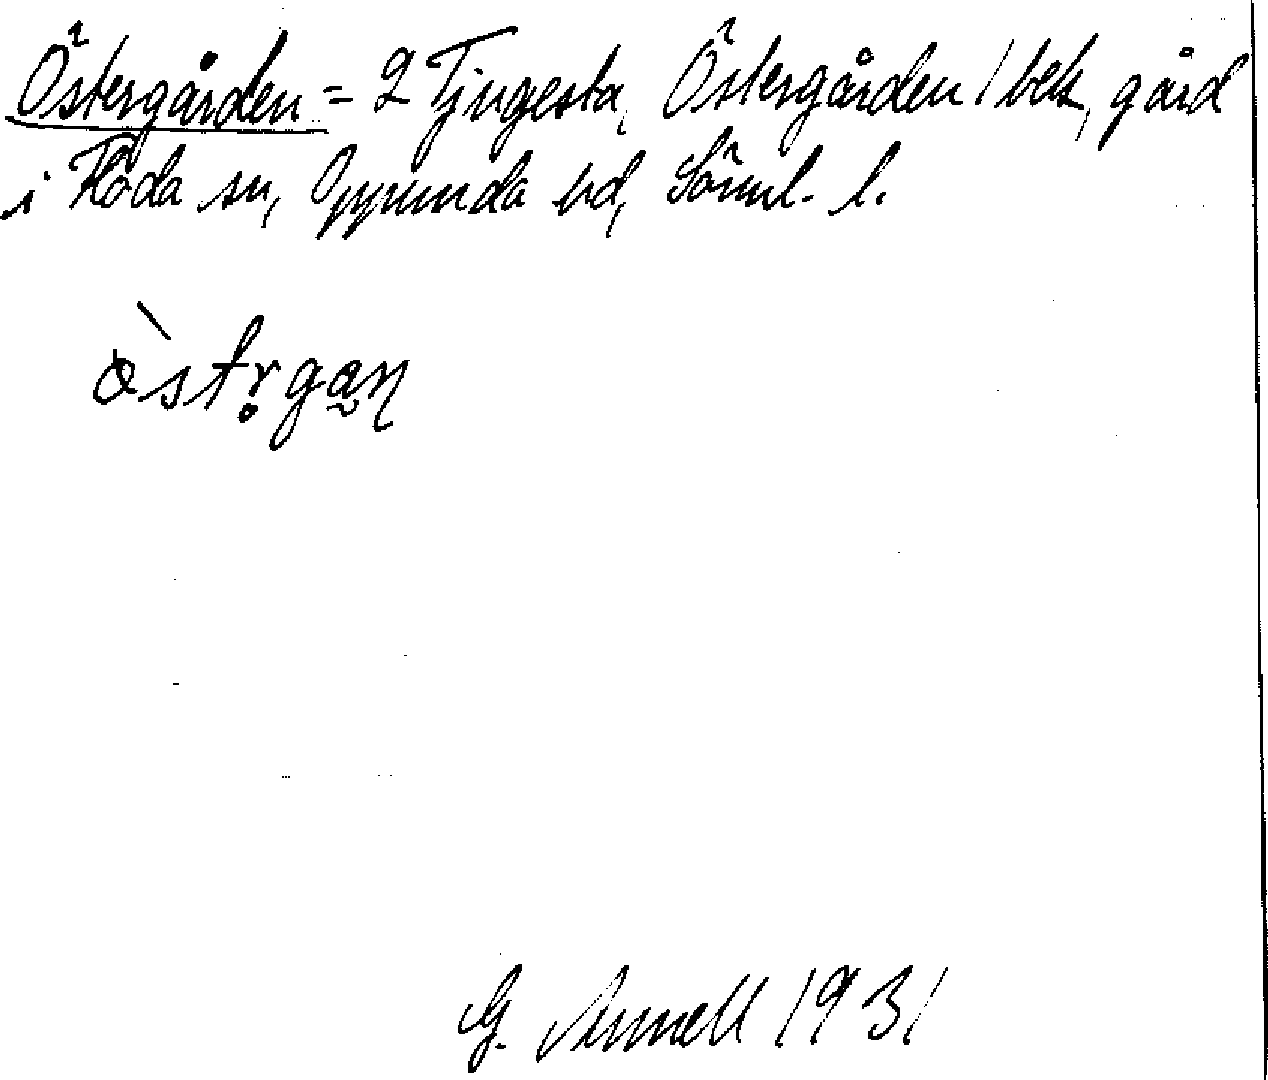 Östergården = 2 Tjugesta, Östergården / bek, gård
i Flöda sn, Oppunda hd, Söml. l.
östrgan
G. Annell 1931